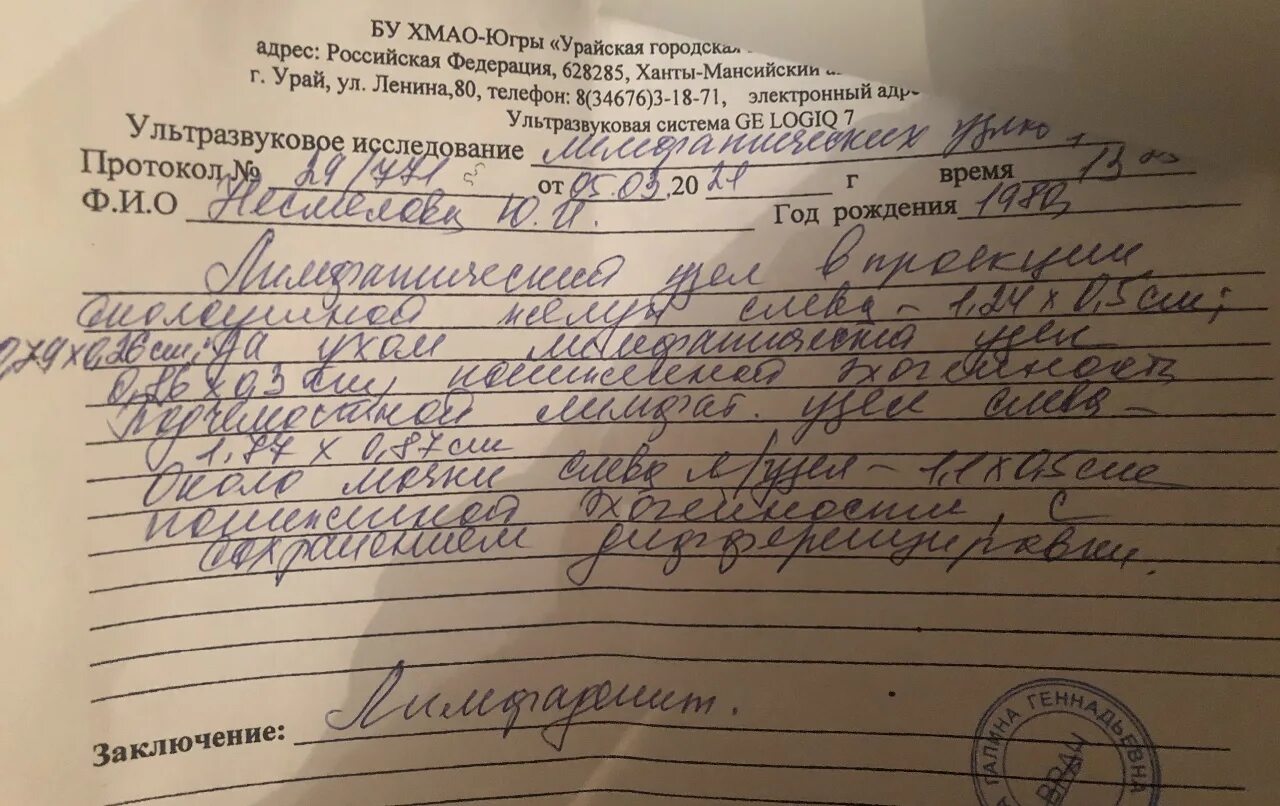 БУ ХМАО-Югры «Урайская городская
адрес: Российская Федерация, 628285, Ханты-Мансийский
г. Урай, ул. Ленина,80, телефон: 8(34676)3-18-71, электронный адр
Ультразвуковая система GE LOGIQ 7
Ультразвуковое исследование лимфатических узлов
Протокол № 29/771 от 05.03.2021 г время 13 00
Ф.И.О Несмелова Ю.И. Год рождения 1980
Лимфатический узел в проекции
околоушной железы слева – 1,24 х 0,5 см;
0,79х0,26см; За ухом лимфатический узел
0,86 х 0,3 см, пониженной эхогенности
Подчелюстной лимфат. узел слева –
1,77 х 0,87 см
Около мочки слева л/узел – 1,1 х 0,5см
пониженной эхогенности, с
сохранением дифференцировки.
Заключение: Лимфаденит.
ГАЛИНА ГЕННАДЬЕВНА
ВРАЧ